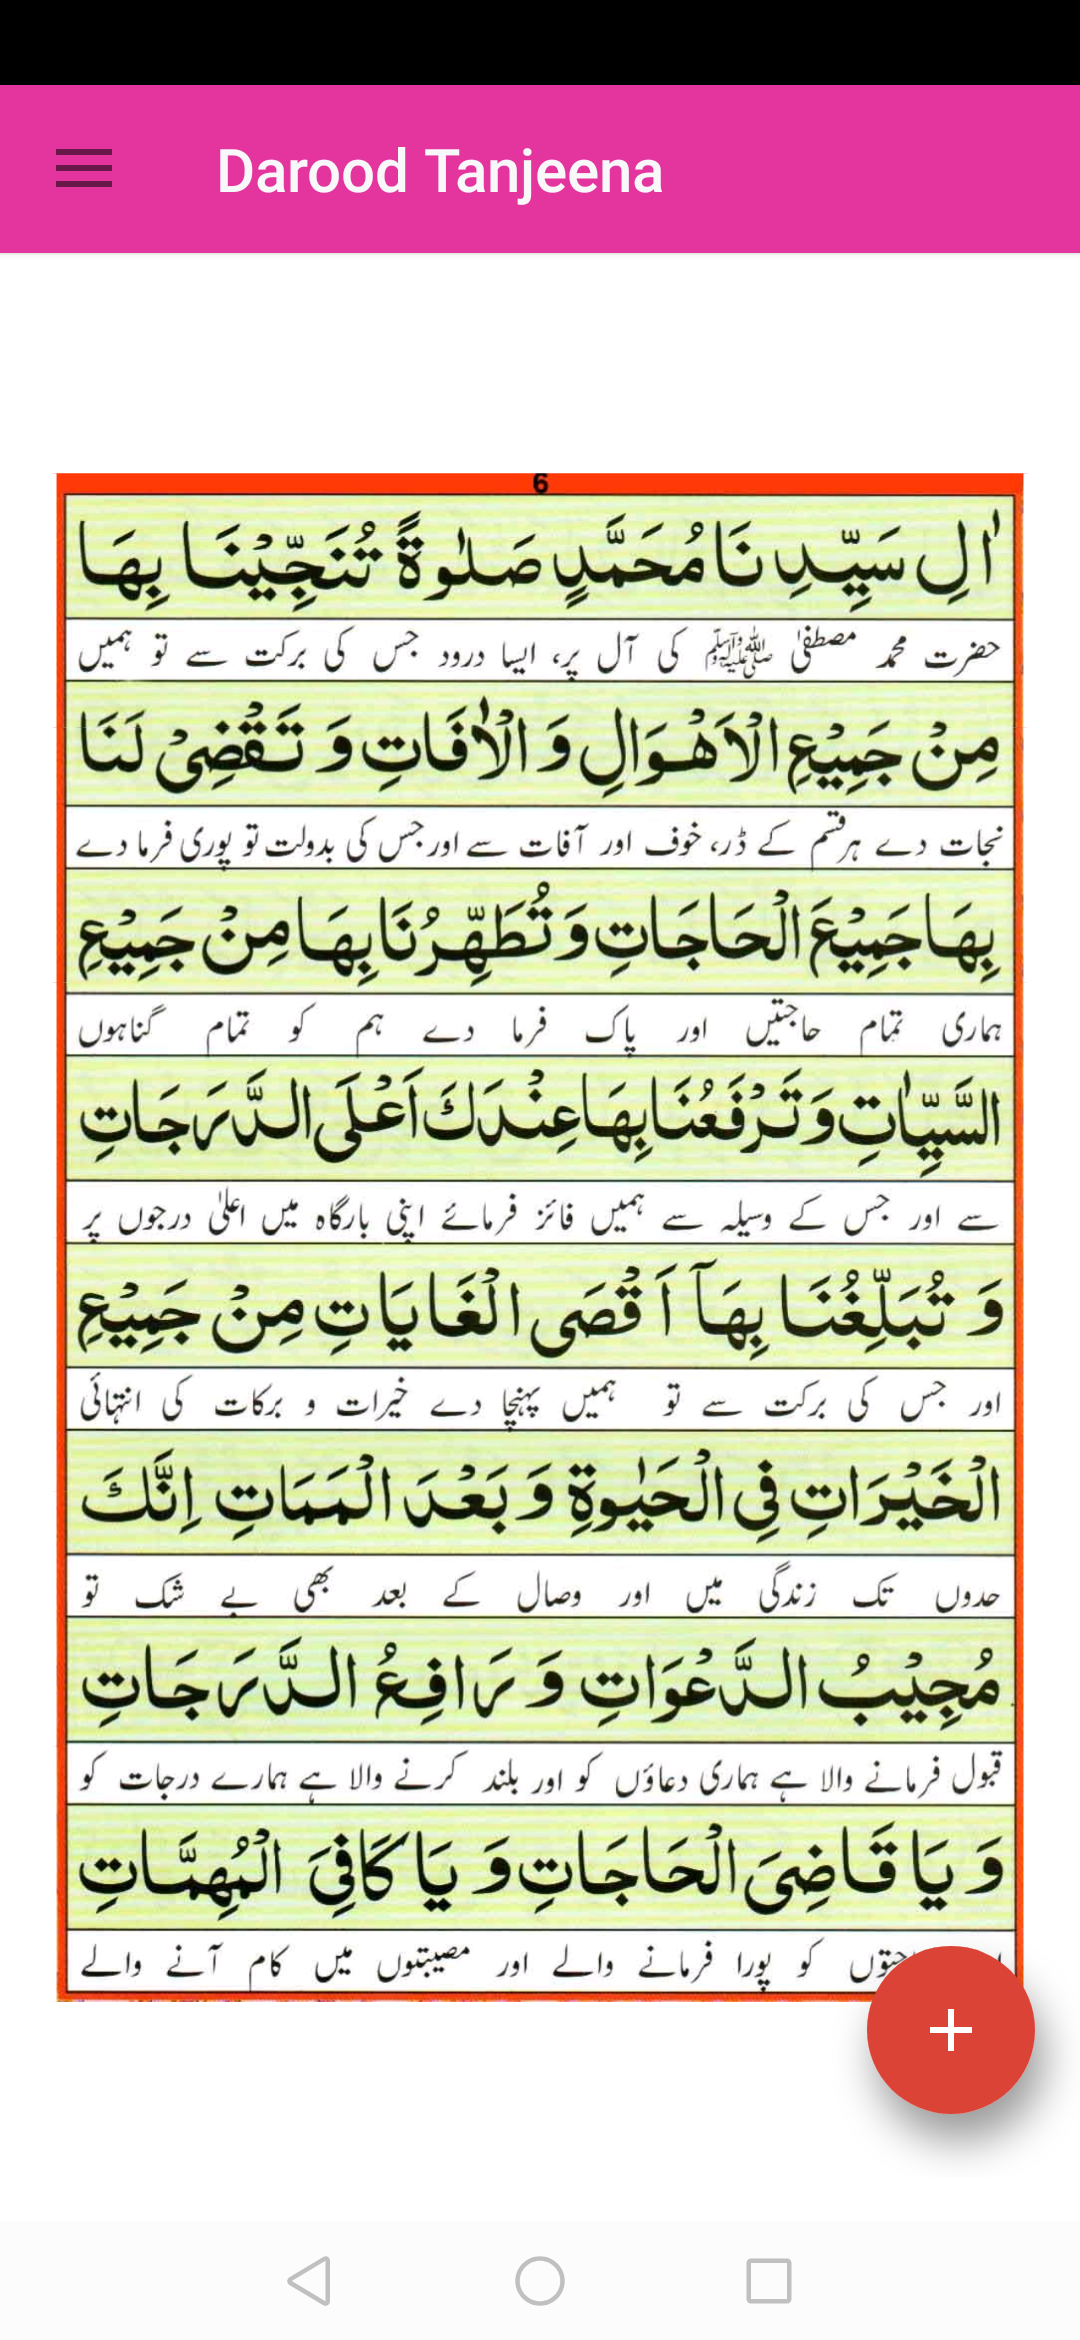 Darood Tanjeena
6
اٰلِ سَيِّدِنَا مُحَمَّدٍ صَلٰوةً تُنَجِّيْنَا بِهَا
حضرت محمد مصطفیٰ ﷺ کی آل پر، ایسا درود جس کی برکت سے تو ہمیں
مِنْ جَمِيْعِ الْاَهْوَالِ وَ الْاٰفَاتِ وَ تَقْضِىْ لَنَا
نجات دے ہر قسم کے ڈر، خوف اور آفات سے اور جس کی بدولت تو پوری فرما دے
بِهَا جَمِيْعَ الْحَاجَاتِ وَ تُطَهِّرُنَا بِهَا مِنْ جَمِيْعِ
ہماری تمام حاجتیں اور پاک فرما دے ہم کو تمام گناہوں
السَّيِّاٰتِ وَ تَرْفَعُنَا بِهَا عِنْدَكَ اَعْلَى الدَّرَجَاتِ
سے اور جس کے وسیلہ سے ہمیں فائز فرمائے اپنی بارگاہ میں اعلیٰ درجوں پر
وَ تُبَلِّغُنَا بِهَآ اَقْصَى الْغَايَاتِ مِنْ جَمِيْعِ
اور جس کی برکت سے تو ہمیں پہنچا دے خیرات و برکات کی انتہائی
الْخَيْرَاتِ فِى الْحَيٰوةِ وَ بَعْدَ الْمَمَاتِ اِنَّكَ
حدوں تک زندگی میں اور وصال کے بعد بھی بے شک تو
مُجِيْبُ الدَّعْوَاتِ وَ رَافِعُ الدَّرَجَاتِ
قبول فرمانے والا ہے ہماری دعاؤں کو اور بلند کرنے والا ہے ہمارے درجات کو
وَ يَا قَاضِىَ الْحَاجَاتِ وَ يَا كَافِىَ الْمُهِمَّاتِ
کو پورا فرمانے والے اور مصیبتوں میں کام آنے والے